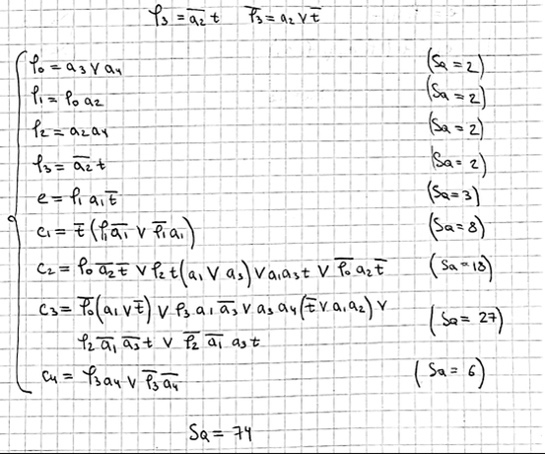 φ₃ = a̅₂ t   φ̅₃ = a₂ ∨ t̅
φ₀ = a₃ ∨ a₄ (Sa = 2)
φ₁ = φ₀ a₂ (Sa = 2)
φ₂ = a₂ a₄ (Sa = 2)
φ₃ = a̅₂ t (Sa = 2)
e = φ₁ a₁ t̅ (Sa = 3)
c₁ = t̅ (φ₁ a̅₁ ∨ φ̅₁ a₁) (Sa = 8)
c₂ = φ₀ a̅₂ t̅ ∨ φ₂ t (a₁ ∨ a₃) ∨ a₁ a₃ t ∨ φ̅₀ a₂ t̅ (Sa = 18)
c₃ = φ̅₀ (a₁ ∨ t̅) ∨ φ₃ a₁ a̅₃ ∨ a₃ a₄ (t̅ ∨ a₁ a₂) ∨ (Sa = 27)
φ₂ a̅₁ a̅₃ t ∨ φ̅₂ a̅₁ a₃ t
c₄ = φ₃ a₄ ∨ φ̅₃ a̅₄ (Sa = 6)
Sa = 74